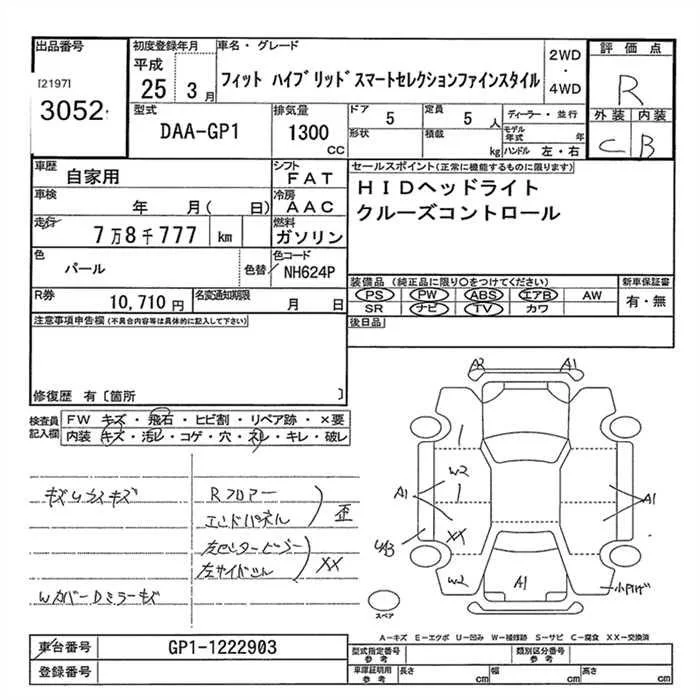 出品番号
[2197]
3052
初度登録年月
平成
25 3月
車名・グレード
フィット ハイブリッドスマートセレクションファインスタイル
2WD
・
4WD
評価点
R
外装 内装
C B
型式
DAA-GP1
排気量
1300
cc
ドア 5
形状
定員 5 人
積載 kg
ディーラー・並行
モデル年式 年
ハンドル 左・右
車歴
自家用
シフト
FAT
車検
年 月( 日)
冷房
AAC
走行
7万8千777 km
燃料
ガソリン
色
パール
色替
色コード
NH624P
R券
10,710円
名変通知期限
月 日
セールスポイント(正常に機能するものに限ります)
HIDヘッドライト
クルーズコントロール
装備品 (純正品に限り○をつけてください)
新車保証書
PS PW ABS エアB AW
有・無
SR ナビ TV カワ
後日品
注意事項申告欄(不具合内容等は具体的に記入して下さい)
修復歴 有〔箇所 〕
検査員
記入欄
FW キズ・飛石・ヒビ割・リペア跡・×要
内装 キズ・汚レ・コゲ・穴・ネレ・キレ・破レ
Rフロアー
エンドパネル
歪
左センターピラー
左サイドシル
XX
WカバーDミラーキズ
A2 A1
W2
A1
XX
W2
A1
A1
スペア
A-キズ E-エクボ U-凹み W-補修跡 S-サビ C-腐食 XX-交換済
車台番号
GP1-1222903
登録番号
型式指定番号
参考
類別区分番号
参考
車庫証明用
参考
長さ cm
幅 cm
高さ cm